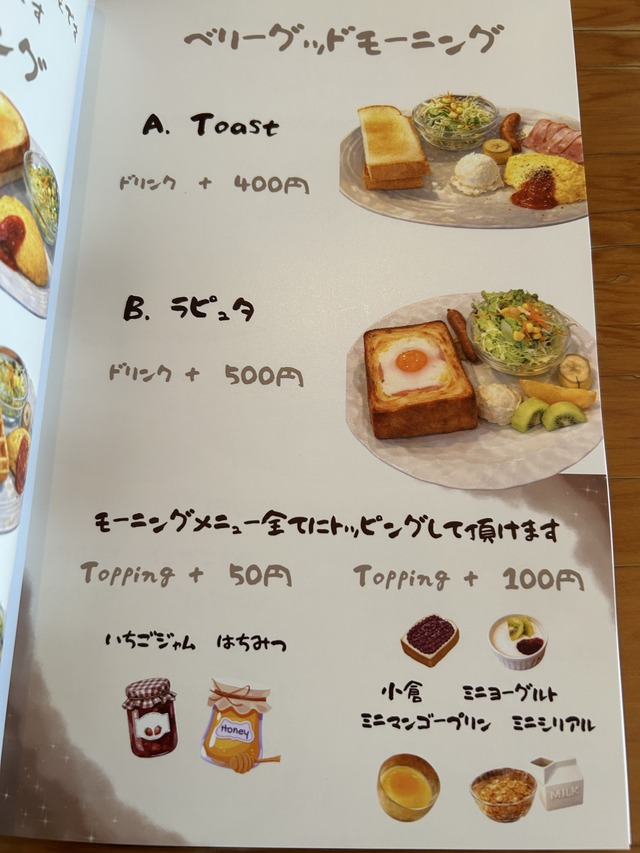 ベリーグッドモーニング
A. Toast
ドリンク + 400円
B. ラピュタ
ドリンク + 500円
モーニングメニュー全てにトッピングして頂けます
Topping + 50円
Topping + 100円
いちごジャム はちみつ
小倉 ミニヨーグルト
ミニマンゴープリン ミニシリアル
Honey
MILK